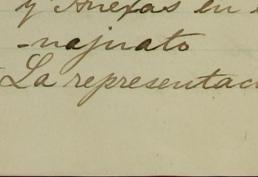 y Anexas en
-najuato
La representac